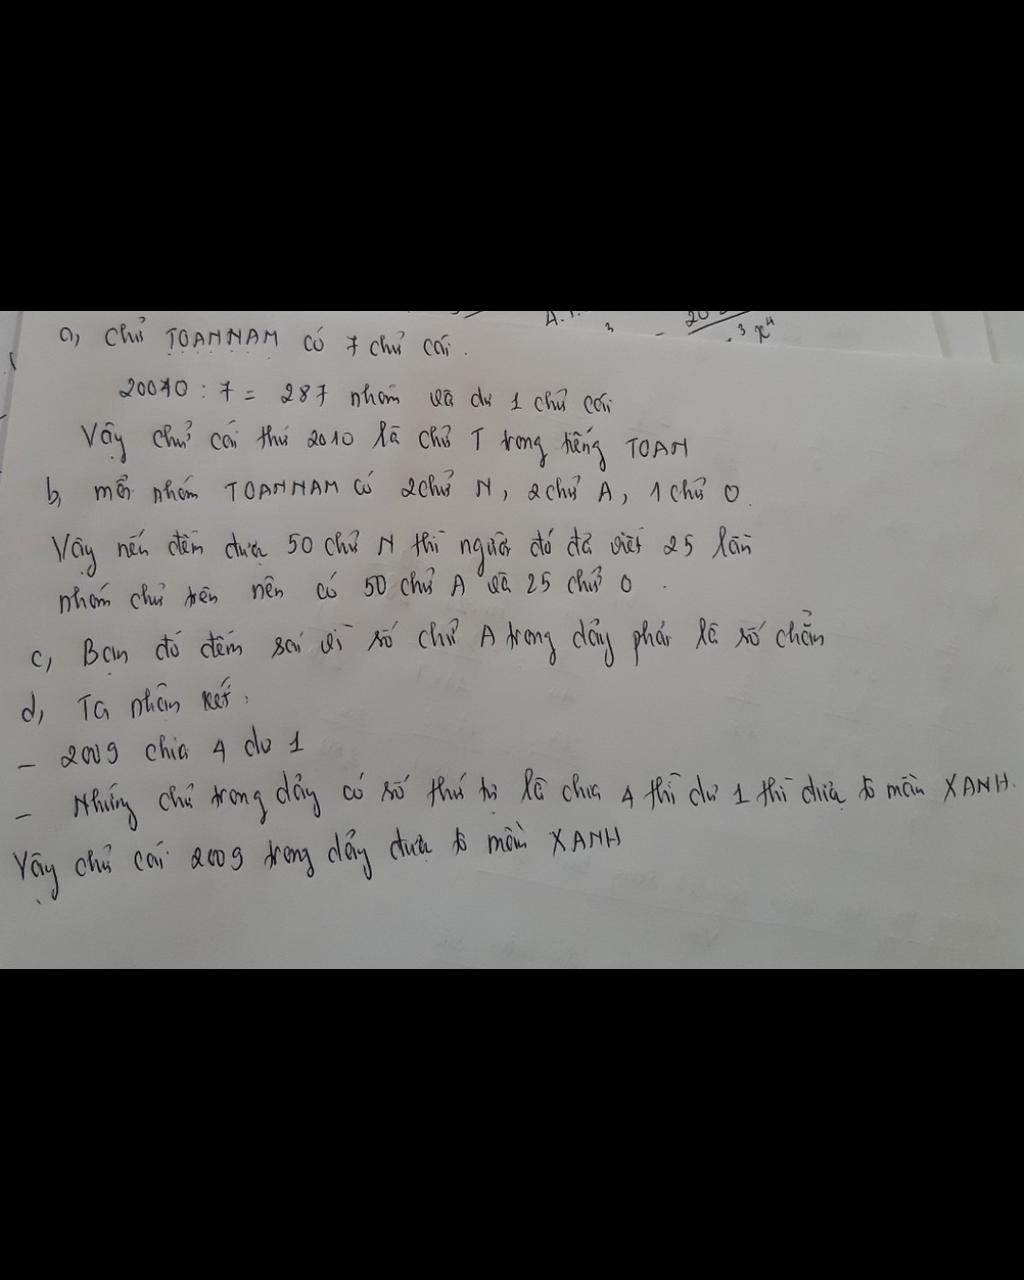 A.1.
20
3
- 3 x⁴
a, chữ TOANNAM có 7 chữ cái.
20010 : 7 = 287 nhóm và dư 1 chữ cái
Vậy chữ cái thứ 2010 là chữ T trong tiếng TOAN
b, mỗi nhóm TOANNAM có 2 chữ N, 2 chữ A, 1 chữ O.
Vậy nếu đếm được 50 chữ N thì người đó đã viết 25 lần
nhóm chữ trên nên có 50 chữ A và 25 chữ O.
c, Bạn đó đếm sai vì số chữ A trong dãy phải là số chẵn
d, Ta nhận xét:
- 2009 chia 4 dư 1
- Những chữ trong dãy có số thứ tự là chia 4 thì dư 1 thì được tô màu XANH.
Vậy chữ cái 2009 trong dãy được tô màu XANH